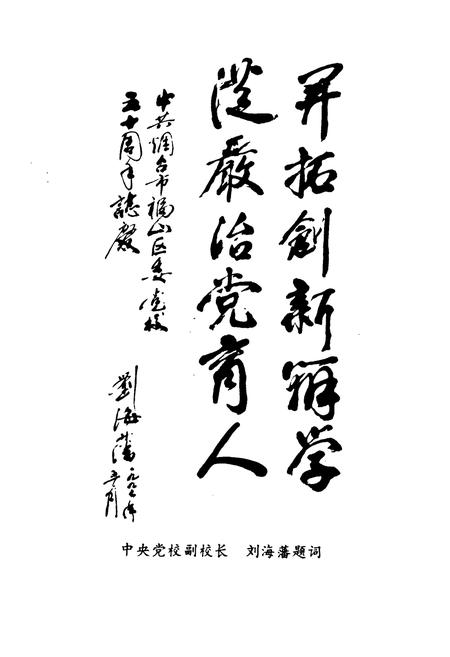 开拓創新辦学
從嚴治党育人
中共烟台市福山区委党校
五十周年誌慶
劉海藩
中央党校副校长 刘海藩题词